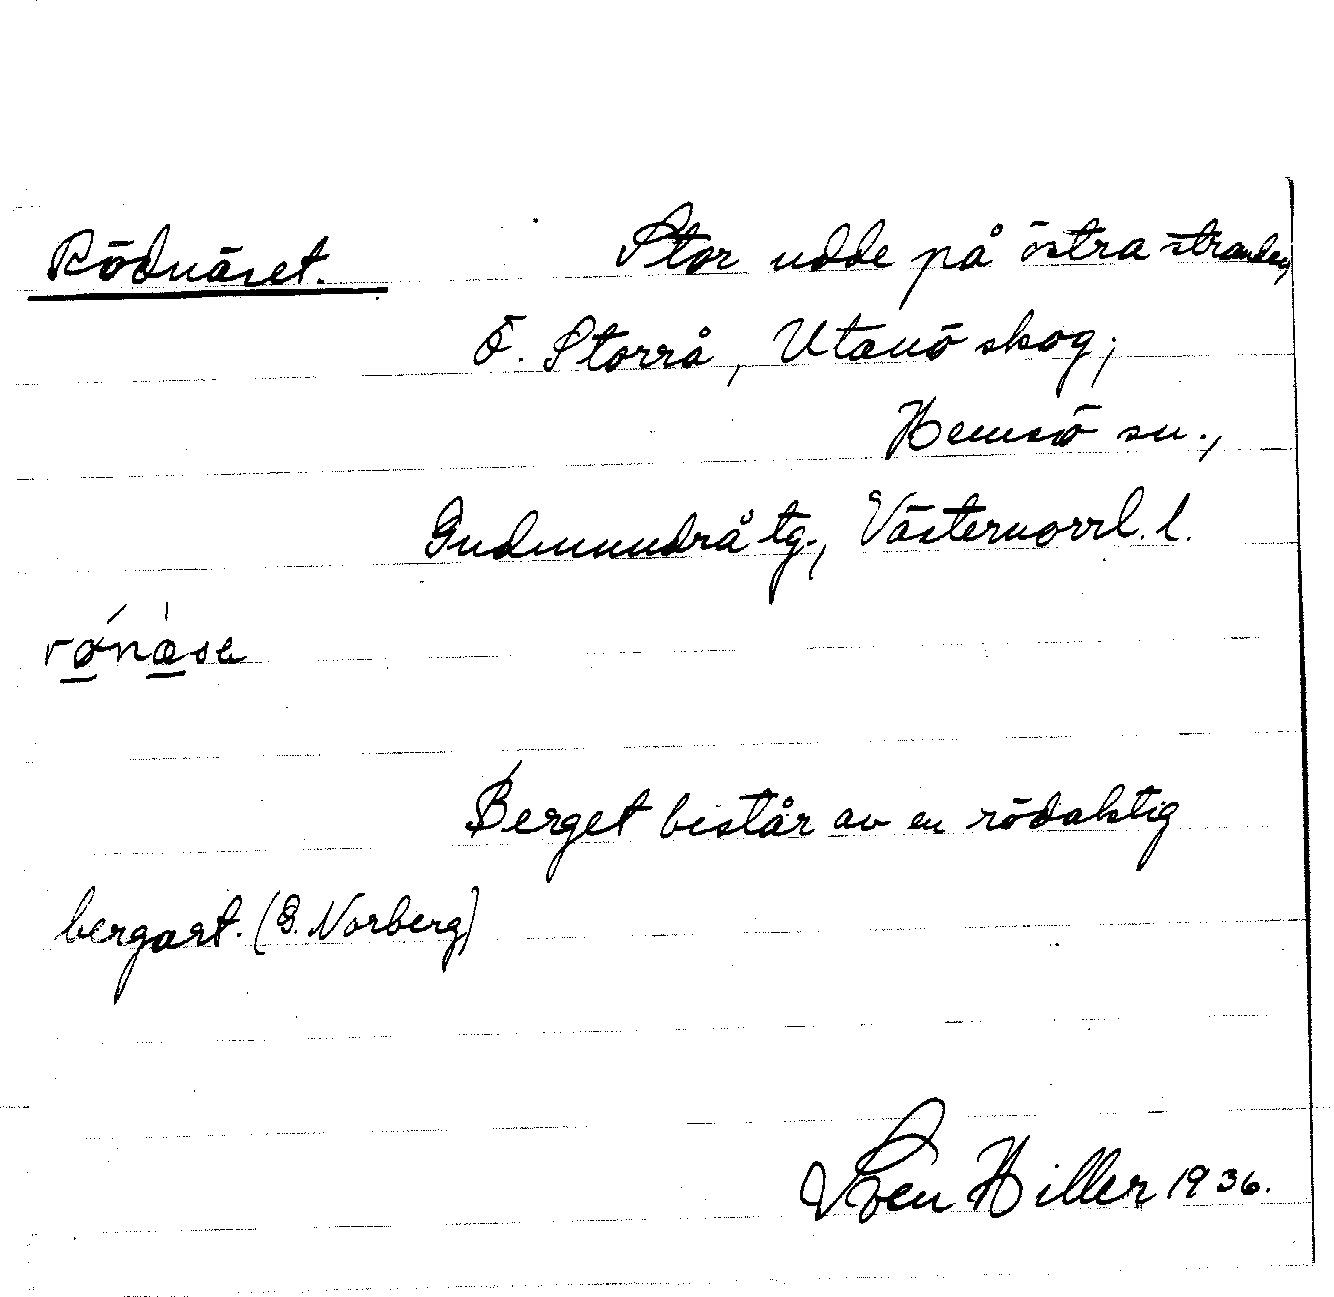 Rödnäset. Stor udde på östra stranden,
Ö. Storrå, Utanö skog,
Hemsö sn.,
Gudmundrå tg., Västernorrl. l.
rǿnæ̀se
Berget består av en rödaktig
bergart. (G. Norberg)
Sven Hiller 1936.